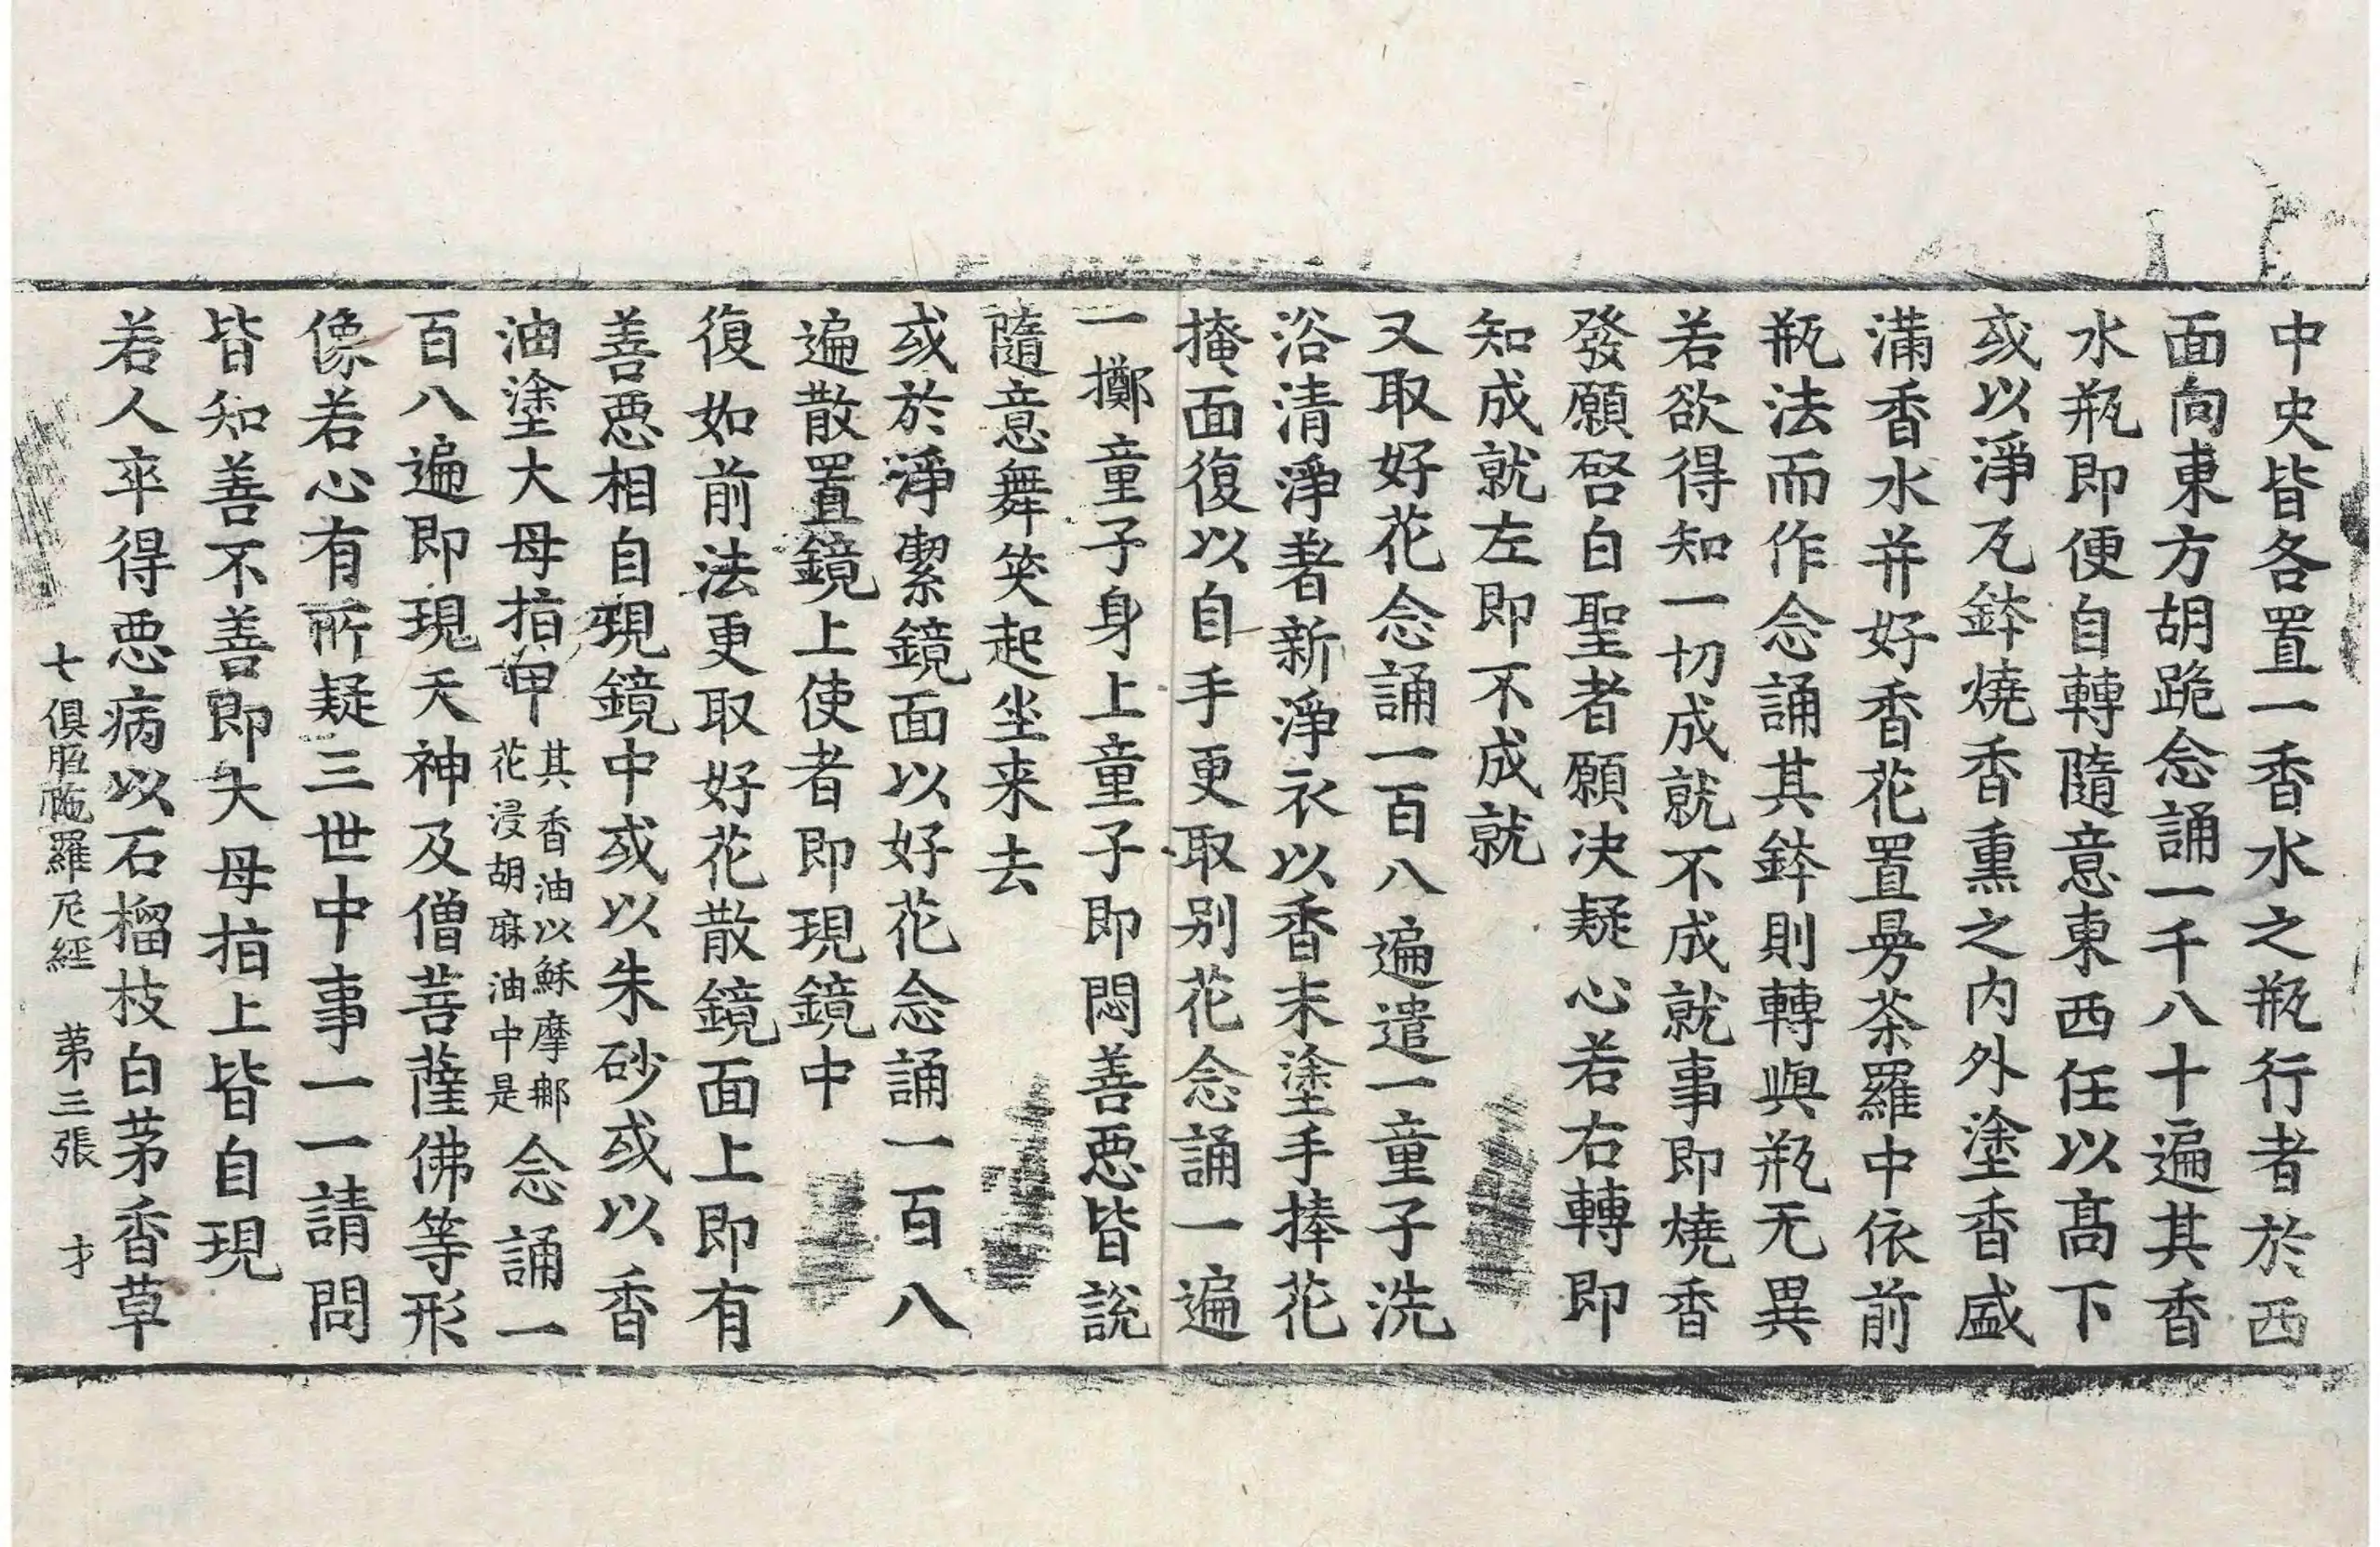 中央皆各置一香水之瓶行者於西
面向東方胡跪念誦一千八十遍其香
水瓶即便自轉隨意東西任以高下
或以淨瓦鉢燒香熏之内外塗香盛
滿香水并好香花置曼荼羅中依前
瓶法而作念誦其鉢則轉與瓶无異
若欲得知一切成就不成就事即燒香
發願啓白聖者願決疑心若右轉即
知成就左即不成就
又取好花念誦一百八遍遣一童子洗
浴清淨著新淨衣以香末塗手捧花
掩面復以自手更取别花念誦一遍
一擲童子身上童子即悶善惡皆說
隨意舞笑起坐来去
或於淨潔鏡面以好花念誦一百八
遍散置鏡上使者即現鏡中
復如前法更取好花散鏡面上即有
善惡相自現鏡中或以朱砂或以香
油塗大母指甲其香油以穌摩郍花浸胡麻油中是念誦一
百八遍即現天神及僧菩薩佛等形
像若心有所疑三世中事一一請問
皆知善不善即大母指上皆自現
若人卒得惡病以石榴枝白茅香草
七俱胝陁羅尼經 苐三張 才